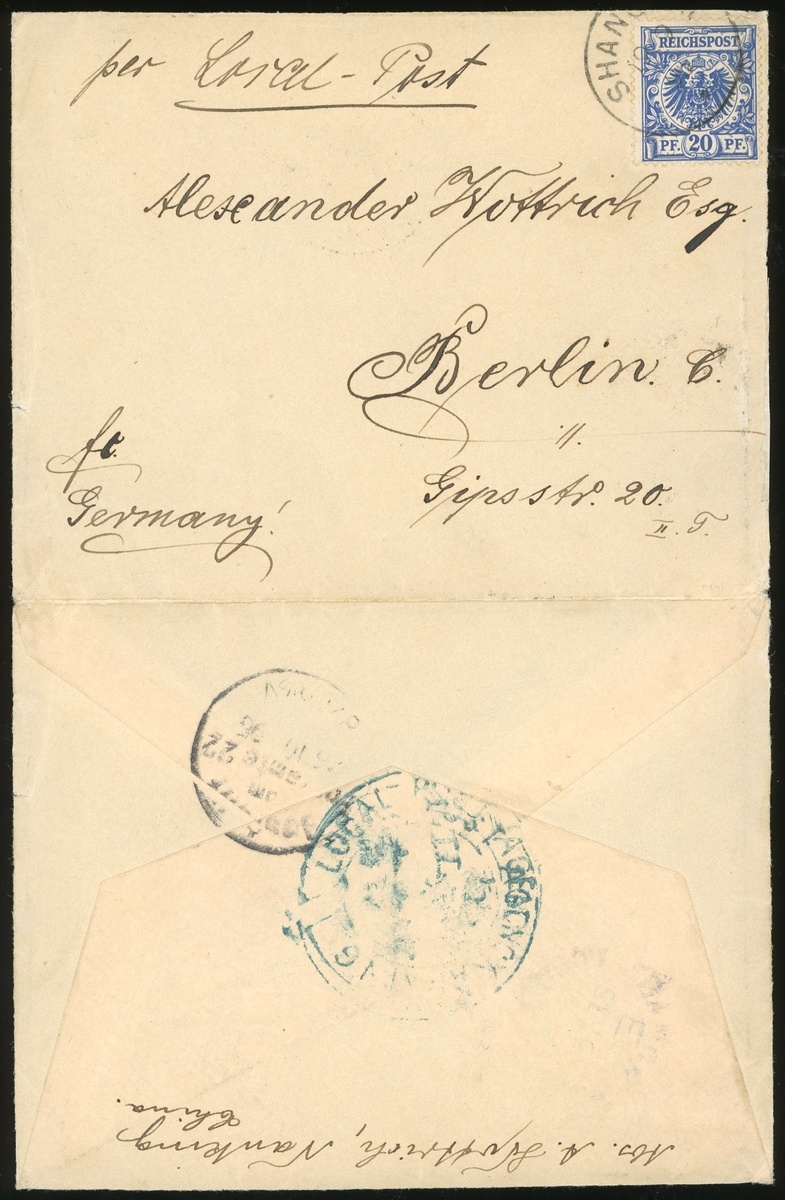 per Local-Post
SHANG
REICHSPOST
PF. 20 PF.
Alexander Wottrich Esq.
Berlin. C.
Gipsstr. 20.
II. T.
fr.
Germany!
LOCAL POST AGENCY
A. Wottrich, Nanking
China.